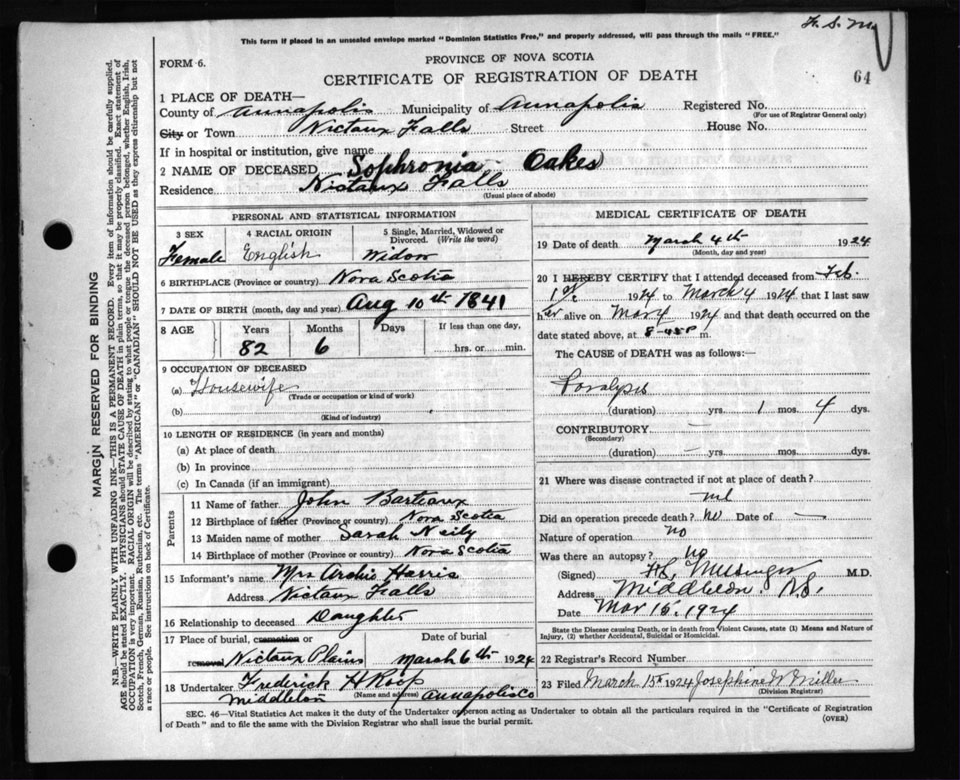 This form if placed in an unsealed envelope marked "Dominion Statistics Free," and properly addressed, will pass through the mails "FREE."
FORM 6.
PROVINCE OF NOVA SCOTIA
CERTIFICATE OF REGISTRATION OF DEATH
64
1 PLACE OF DEATH—
County of Annapolis Municipality of Annapolis Registered No.
(For use of Registrar General only)
City or Town Nictaux Falls Street House No.
If in hospital or institution, give name
2 NAME OF DECEASED Sophronia Oakes
Residence Nictaux Falls
(Usual place of abode)
PERSONAL AND STATISTICAL INFORMATION
3 SEX 4 RACIAL ORIGIN 5 Single, Married, Widowed or Divorced. (Write the word)
Female English Widow
6 BIRTHPLACE (Province or country) Nova Scotia
7 DATE OF BIRTH (month, day and year) Aug 10th 1841
8 AGE Years Months Days If less than one day,
82 6 hrs. or min.
9 OCCUPATION OF DECEASED
(a) Housewife
(Trade or occupation or kind of work)
(b)
(Kind of industry)
10 LENGTH OF RESIDENCE (in years and months)
(a) At place of death
(b) In province
(c) In Canada (if an immigrant)
Parents
11 Name of father John Barteaux
12 Birthplace of father (Province or country) Nova Scotia
13 Maiden name of mother Sarah Neily
14 Birthplace of mother (Province or country) Nova Scotia
15 Informant's name Mrs Archie Harris
Address Nictaux Falls
16 Relationship to deceased Daughter
17 Place of burial, cremation or removal Nictaux Plains
Date of burial March 6th 1924
18 Undertaker Frederick H Roop
Middleton (Name and address) Annapolis Co
MEDICAL CERTIFICATE OF DEATH
19 Date of death March 4th 1924
(Month, day and year)
20 I HEREBY CERTIFY that I attended deceased from Feb.
1st 1924 to March 4 1924 that I last saw
her alive on Mar 4 1924 and that death occurred on the
date stated above, at 8-45 P m.
The CAUSE of DEATH was as follows:—
Paralysis
(duration) yrs. 1 mos. 4 dys.
CONTRIBUTORY —
(Secondary)
(duration) — yrs. mos. dys.
21 Where was disease contracted if not at place of death?
Did an operation precede death? No Date of —
Nature of operation No
Was there an autopsy? No
(Signed) M.D.
Address Middleton. N.S.
Date Mar 15 1924
State the Disease causing Death, or in death from Violent Causes, state (1) Means and Nature of
Injury, (2) whether Accidental, Suicidal or Homicidal.
22 Registrar's Record Number
23 Filed March 15th 1924 Josephine W Miller
(Division Registrar)
SEC. 46—Vital Statistics Act makes it the duty of the Undertaker or person acting as Undertaker to obtain all the particulars required in the "Certificate of Registration
of Death" and to file the same with the Division Registrar who shall issue the burial permit.
(OVER)
MARGIN RESERVED FOR BINDING
N.B.—WRITE PLAINLY WITH UNFADING INK—THIS IS A PERMANENT RECORD. Every item of information should be carefully supplied.
AGE should be stated EXACTLY. PHYSICIANS should STATE CAUSE OF DEATH in plain terms, so that it may be properly classified. Exact statement of
OCCUPATION is very important. RACIAL ORIGIN will be described by stating to what people or tongue the deceased person belonged, whether English, Irish,
Scotch, French, German, Russian, Ruthenian, etc. The terms "AMERICAN" or "CANADIAN" SHOULD NOT BE USED as they express citizenship but not
a race or people. See instructions on back of Certificate.